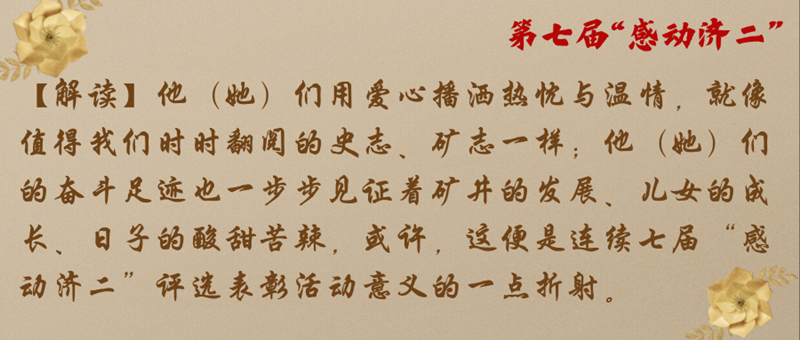 第七届“感动济二”
【解读】他（她）们用爱心播洒热忱与温情，就像
值得我们时时翻阅的史志、矿志一样；他（她）们
的奋斗足迹也一步步见证着矿井的发展、儿女的成
长、日子的酸甜苦辣，或许，这便是连续七届“感
动济二”评选表彰活动意义的一点折射。